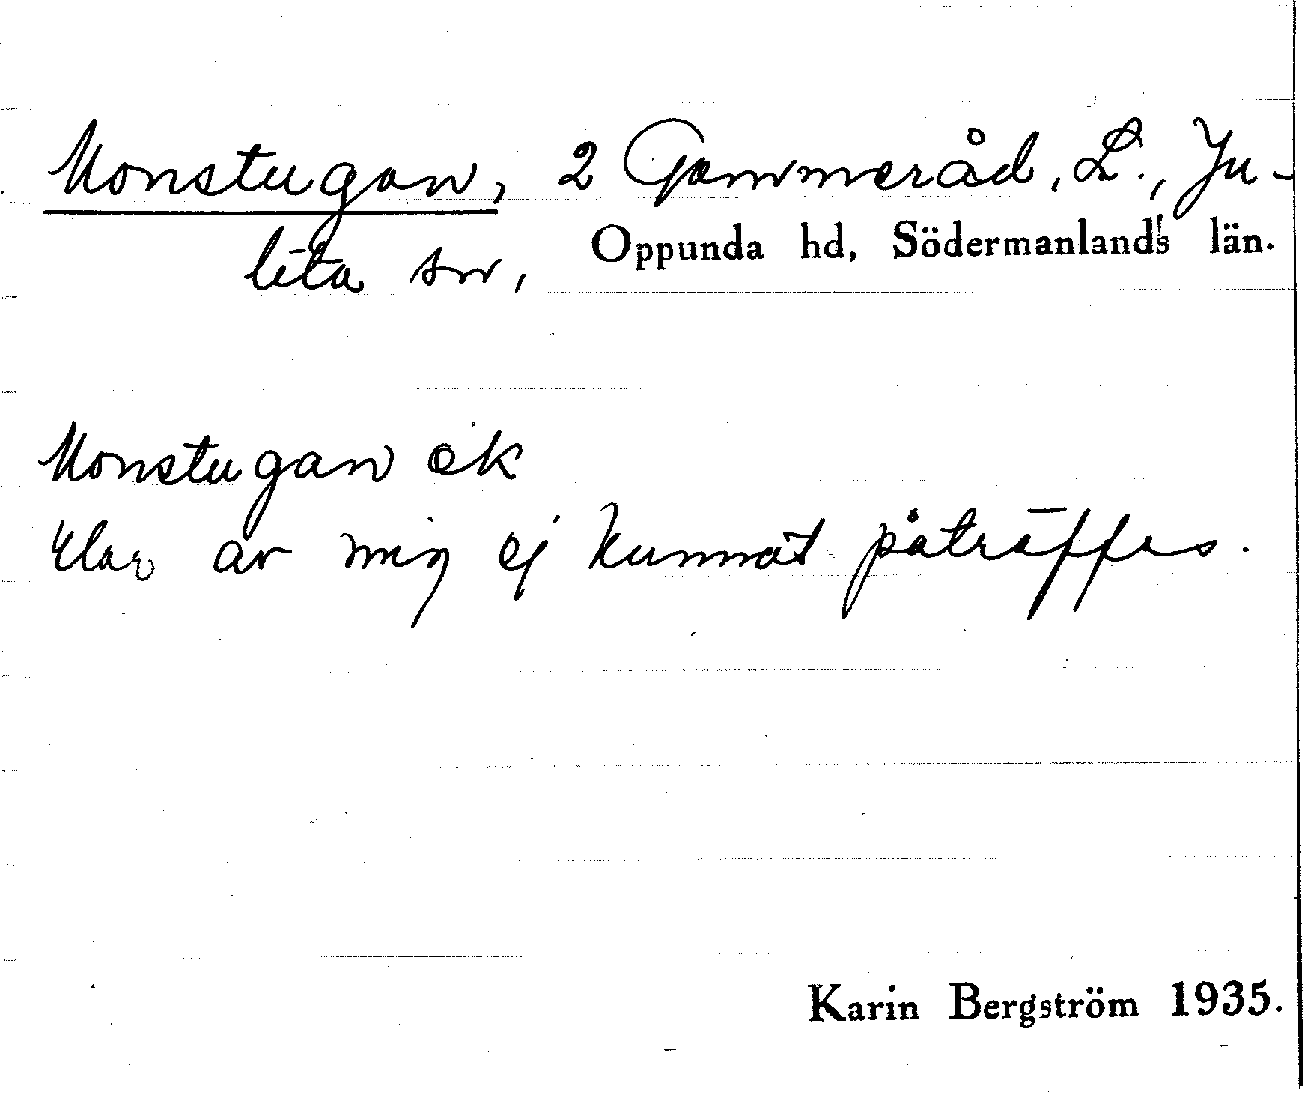 Monstugan, 2 Gammeråd, L., Ju-
leta sn, Oppunda hd, Södermanlands län.
Monstugan ek
Har av mig ej kunnat påträffas.
Karin Bergström 1935.